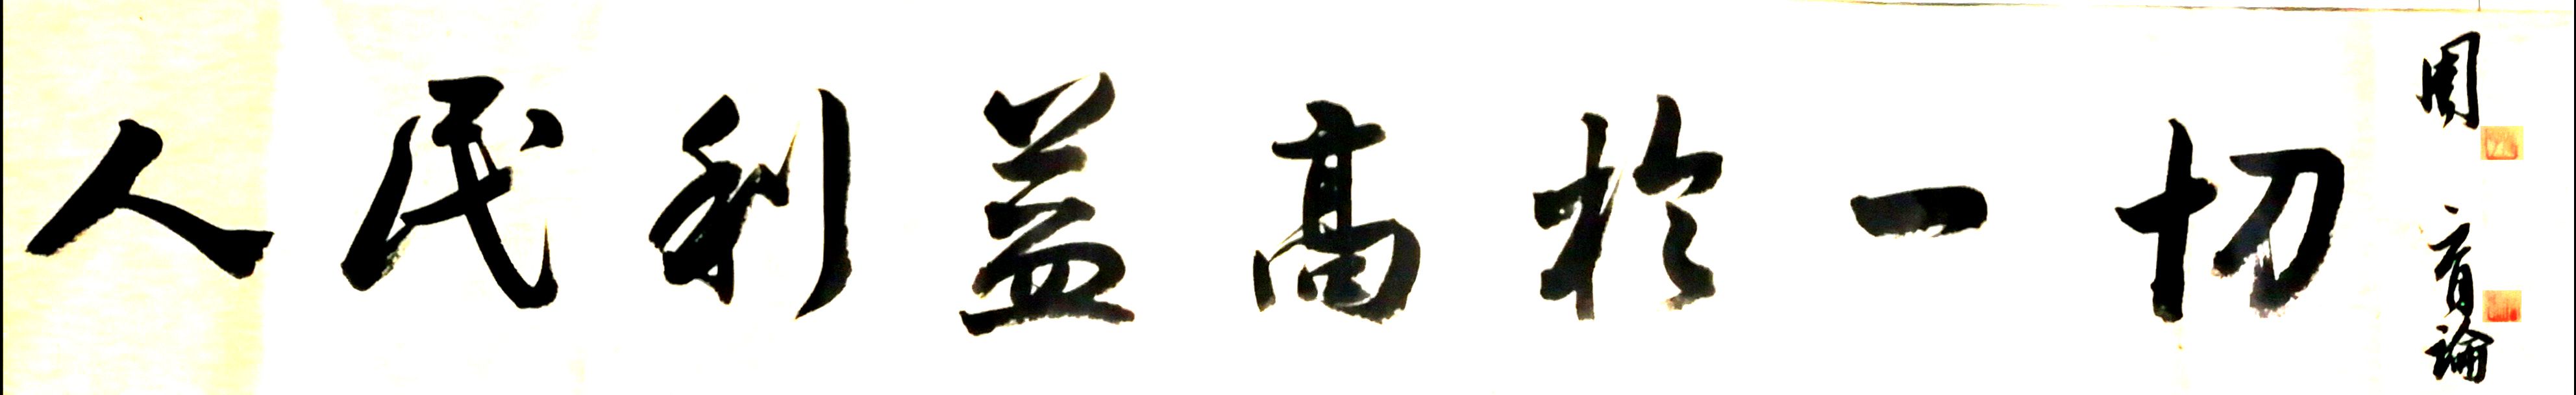 人民利益高於一切
周育論